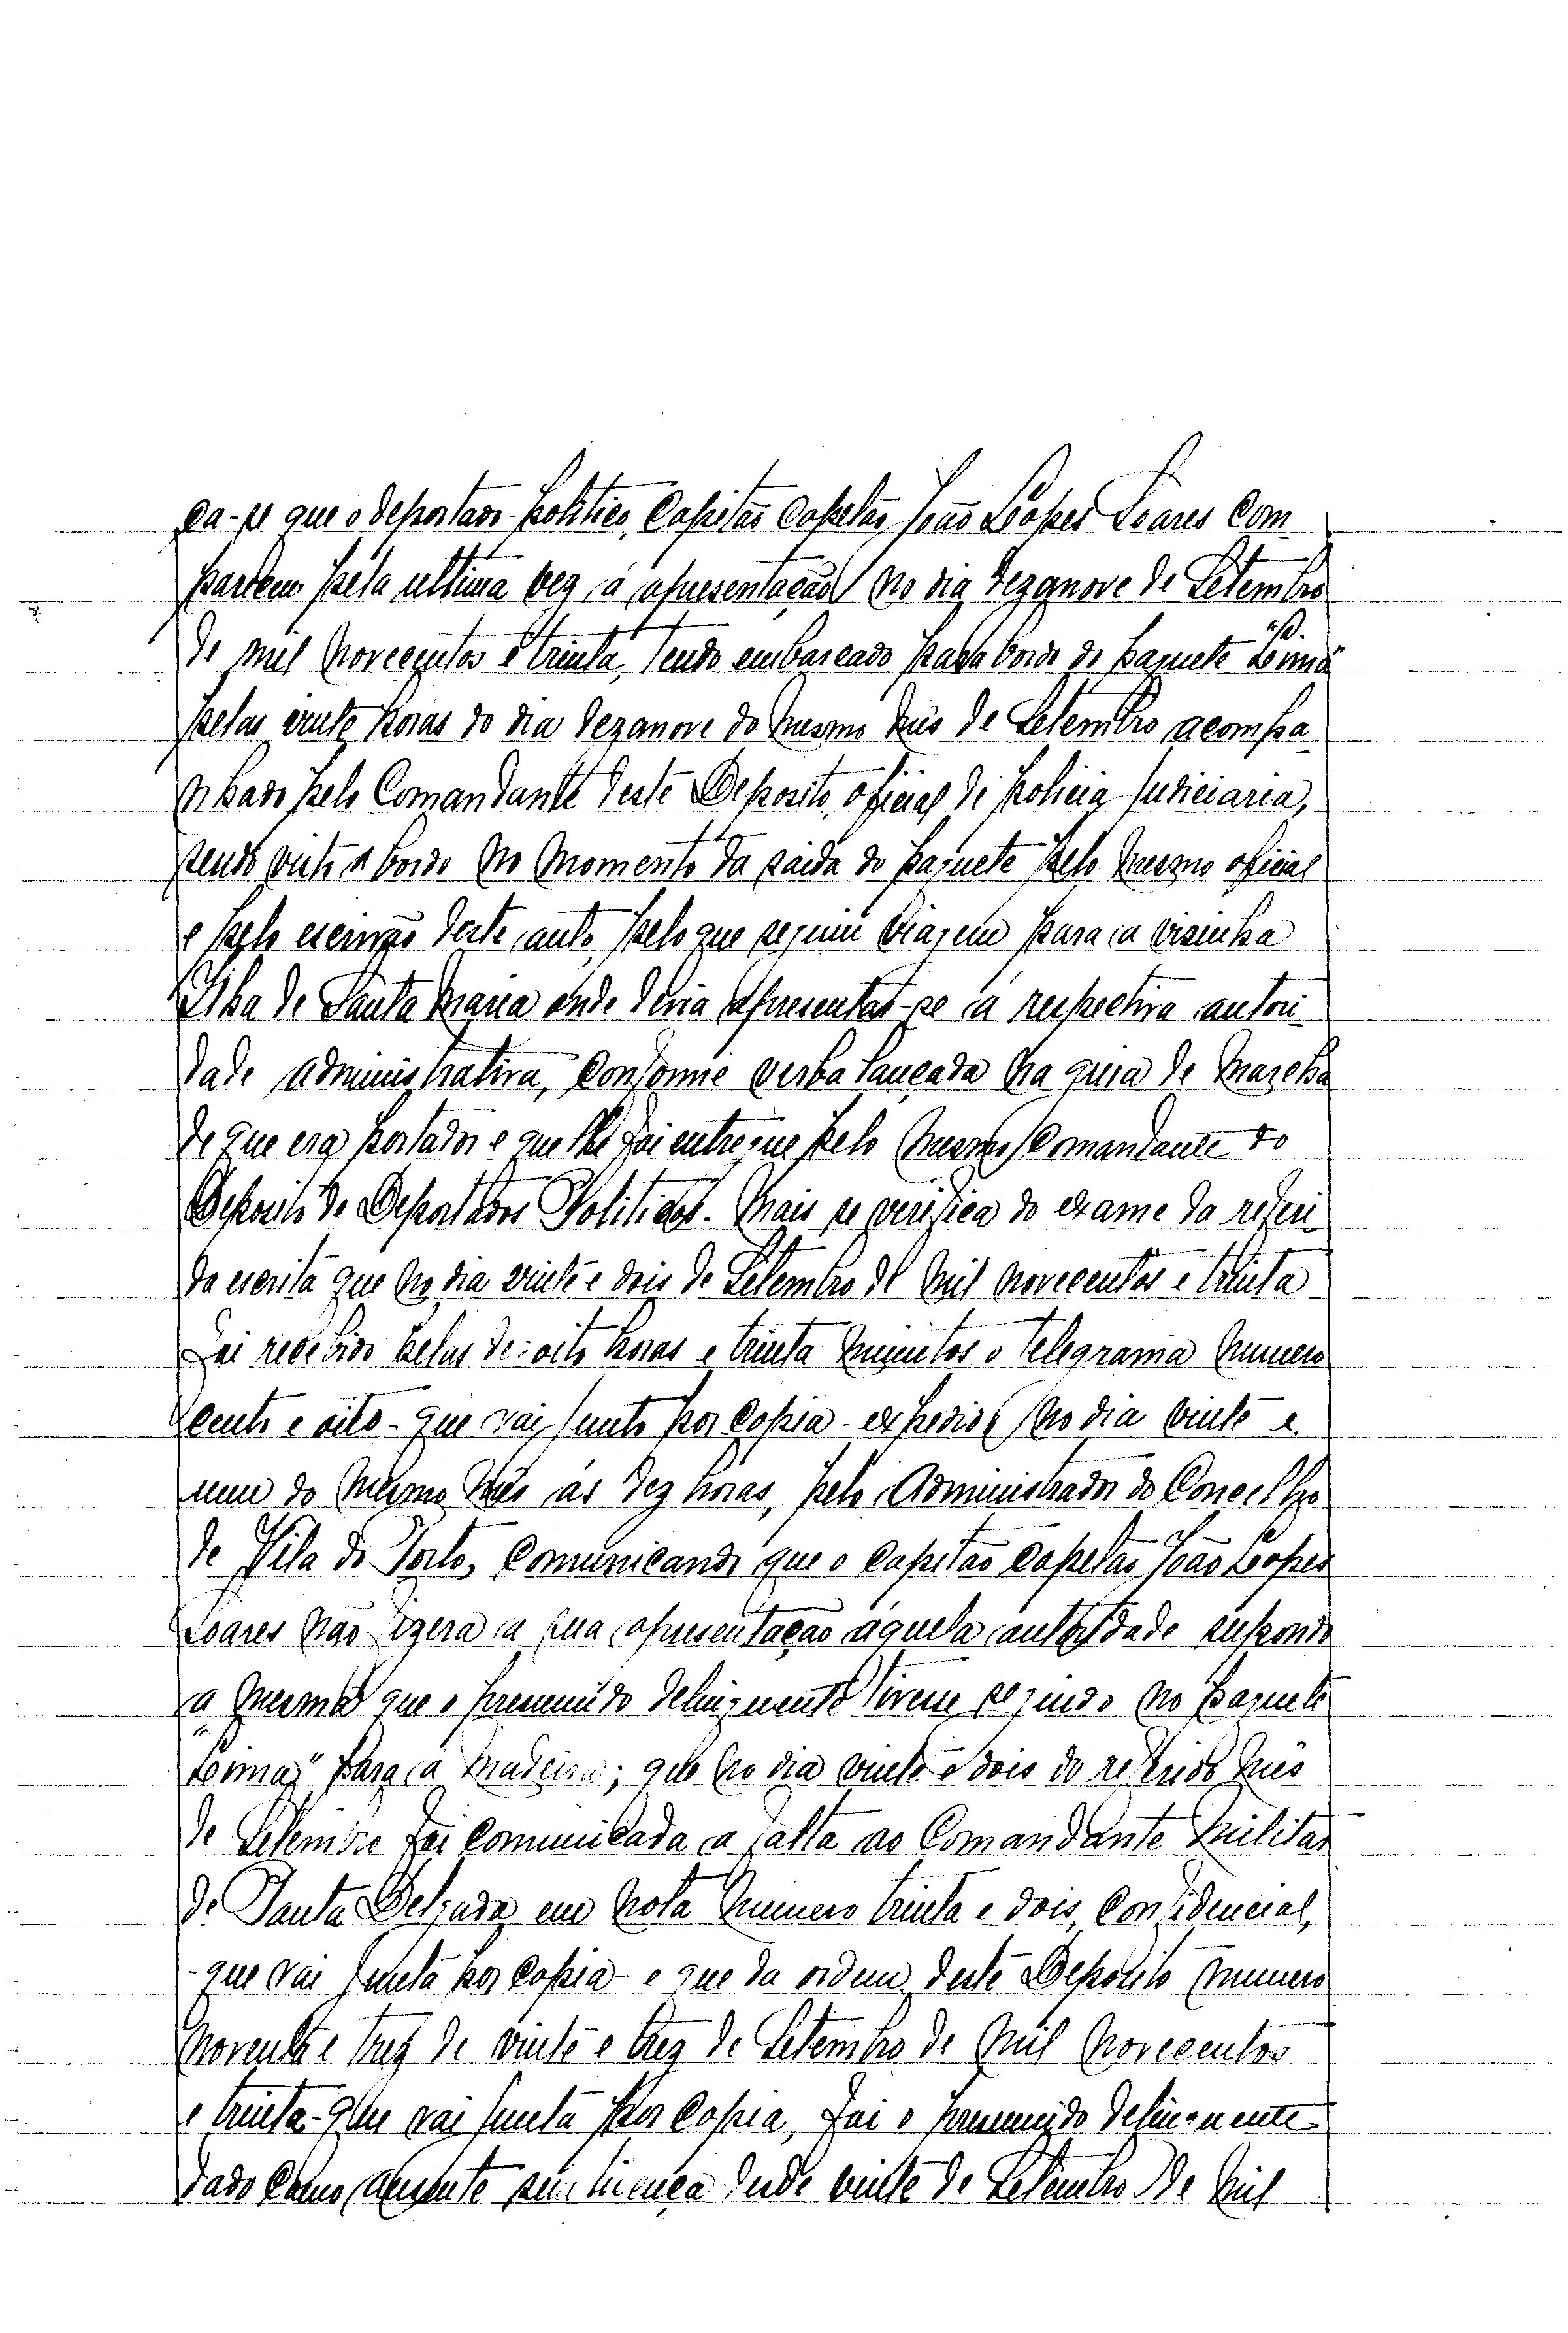 ca-se que o deportado politico, Capitão Capelão João Lopes Soares com-
pareceu pela ultima vez á apresentação no dia dezanove de Setembro
de mil novecentos e trinta, tendo embarcado para bordo do paquete "Lima"
pelas vinte horas do dia dezanove do mesmo mês de Setembro acompa-
nhado pelo Comandante deste Deposito, oficial de policia judiciaria,
sendo visto a bordo no momento da saída do paquete pelo mesmo oficial
e pelo escrivão deste auto, pelo que seguiu viagem para a visinha
Ilha de Santa Maria onde devia apresentar-se á respectiva autori-
dade administrativa, conforme verba lançada na guia de marcha
de que era portador e que lhe foi entregue pelo mesmo Comandante do
Deposito de Deportados Politicos. Mais se verifica do exame da referi-
da escrita que no dia vinte e dois de Setembro de mil novecentos e trinta
foi recebido pelas dezoito horas e trinta minutos o telegrama numero
cento e oito - que vai junto por copia - expedido no dia vinte e
um do mesmo mês ás dez horas, pelo Administrador do Concelho
de Vila do Porto, comunicando que o capitão capelão João Lopes
Soares não fizera a sua apresentação áquela autoridade supondo
a mesma que o presumido delinquente tivesse seguido no paquete
"Lima" para a Madeira; que no dia vinte e dois do referido mês
de Setembro foi comunicada a falta ao Comandante Militar
de Ponta Delgada em nota numero trinta e dois, confidencial,
- que vai junta por copia - e que da ordem deste Deposito numero
noventa e trez de vinte e trez de Setembro de mil novecentos
e trinta - que vai junta por copia, foi o presumido delinquente
dado como ausente sem licença desde vinte de Setembro de mil